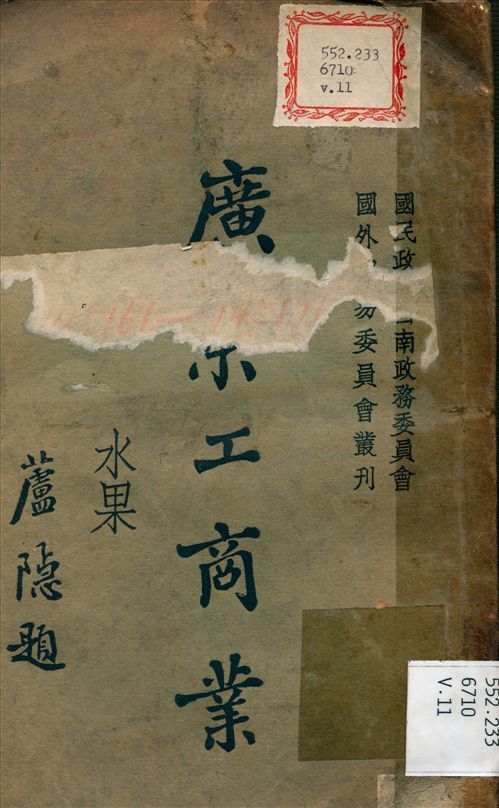 552.233
6710
v.11
國民政 南政務委員會
國外 易委員會叢刊
廣 工商業
水果
蘆隱題
552.233
6710
V.11